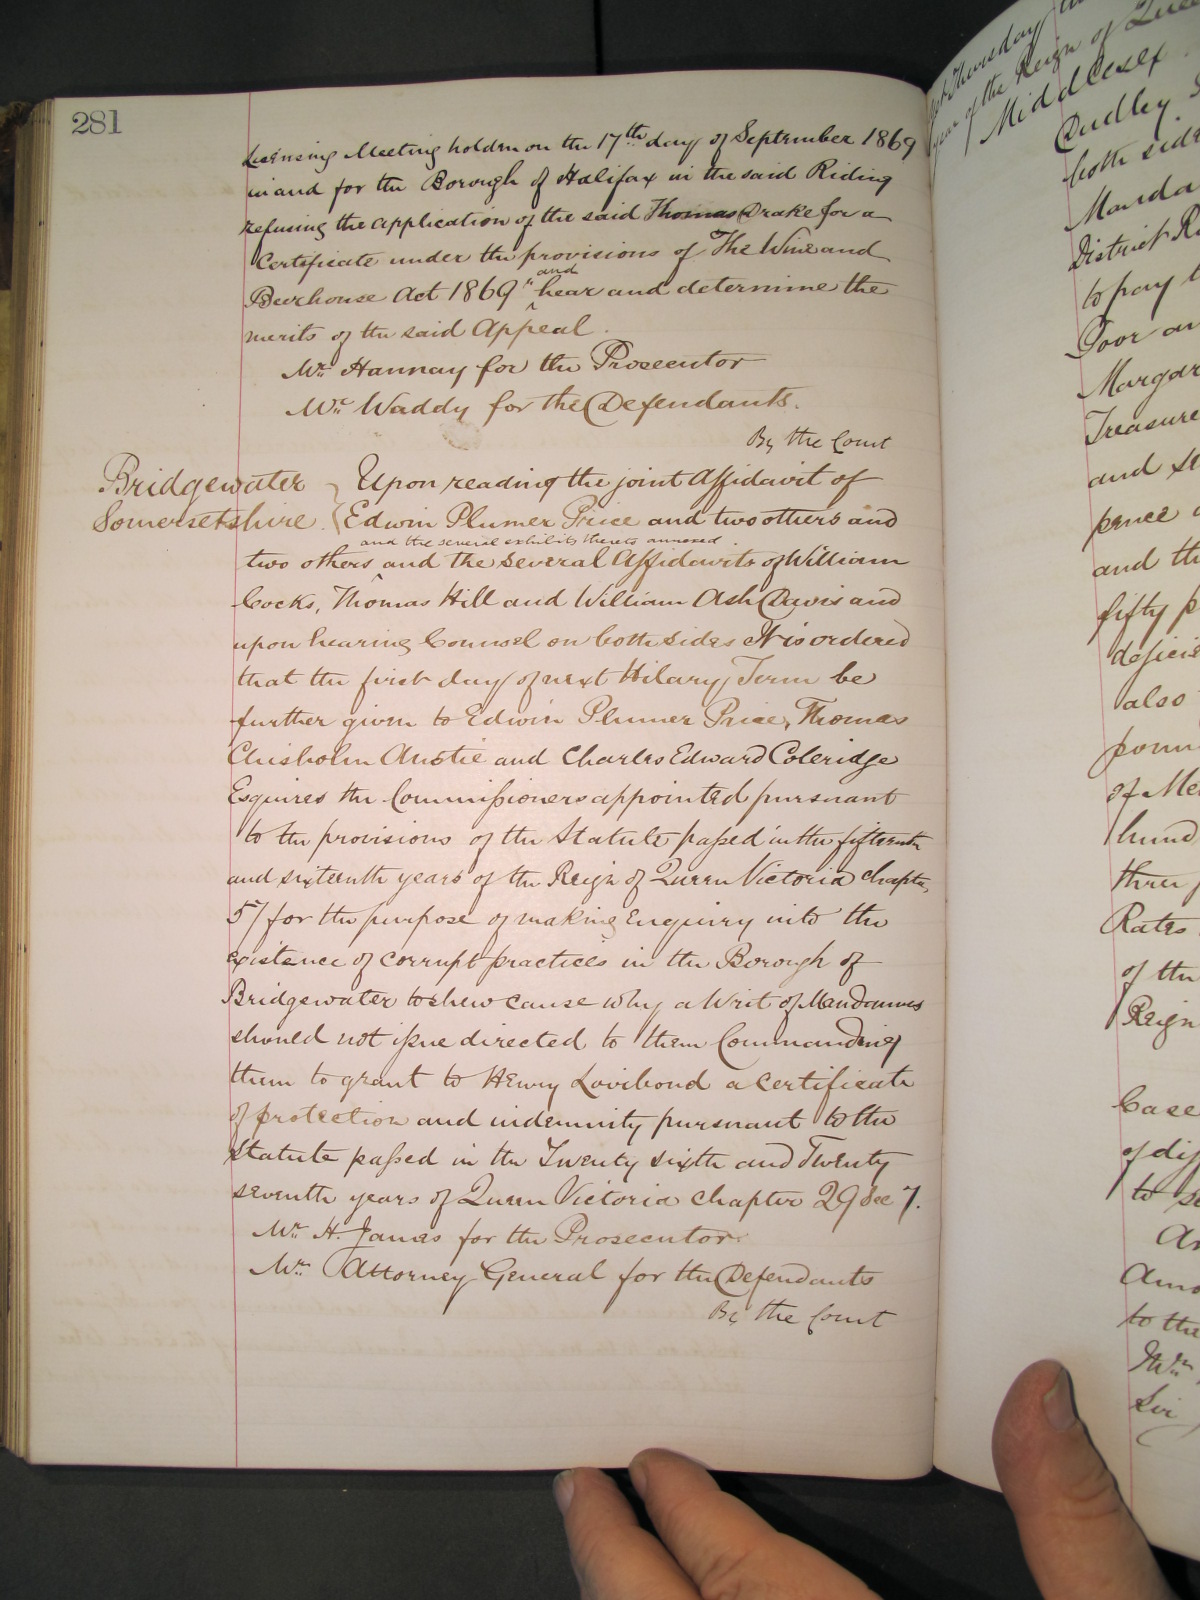 281
Licensing Meeting holden on the 17th day of September 1869
in and for the Borough of Halifax in the said Riding
refusing the application of the said Thomas Drake for a
Certificate under the provisions of "The Wine and
Beerhouse Act 1869" and hear and determine the
merits of the said Appeal.
Mr. Hannay for the Prosecutor
Mr. Waddy for the Defendants.
By the Court
Bridgewater
Somersetshire.
Upon reading the joint Affidavit of
Edwin Plumer Price and two others and
and the several exhibits thereto annexed.
two others and the several Affidavits of William
Cocks, Thomas Hill and William Ash Davis and
upon hearing Counsel on both sides It is ordered
that the first day of next Hilary Term be
further given to Edwin Plumer Price, Thomas
Chisholm Anstie and Charles Edward Coleridge
Esquires the Commissioners appointed pursuant
to the provisions of the Statute passed in the fifteenth
and sixteenth years of the Reign of Queen Victoria chapter
57 for the purpose of making Enquiry into the
existence of corrupt practices in the Borough of
Bridgewater to shew cause why a Writ of Mandamus
should not issue directed to them Commanding
them to grant to Henry Lovibond a certificate
of protection and indemnity pursuant to the
Statute passed in the Twenty sixth and Twenty
seventh years of Queen Victoria chapter 29 Sec 7.
Mr. H. James for the Prosecutor.
Mr. Attorney General for the Defendants
By the Court
Thursday
year of the Reign of
Middlesex
Dudley
both
District
to pay
Poor
and
pence
and
fifty
also
of
three
Rates
of the
Reign
Case
of
to
to the